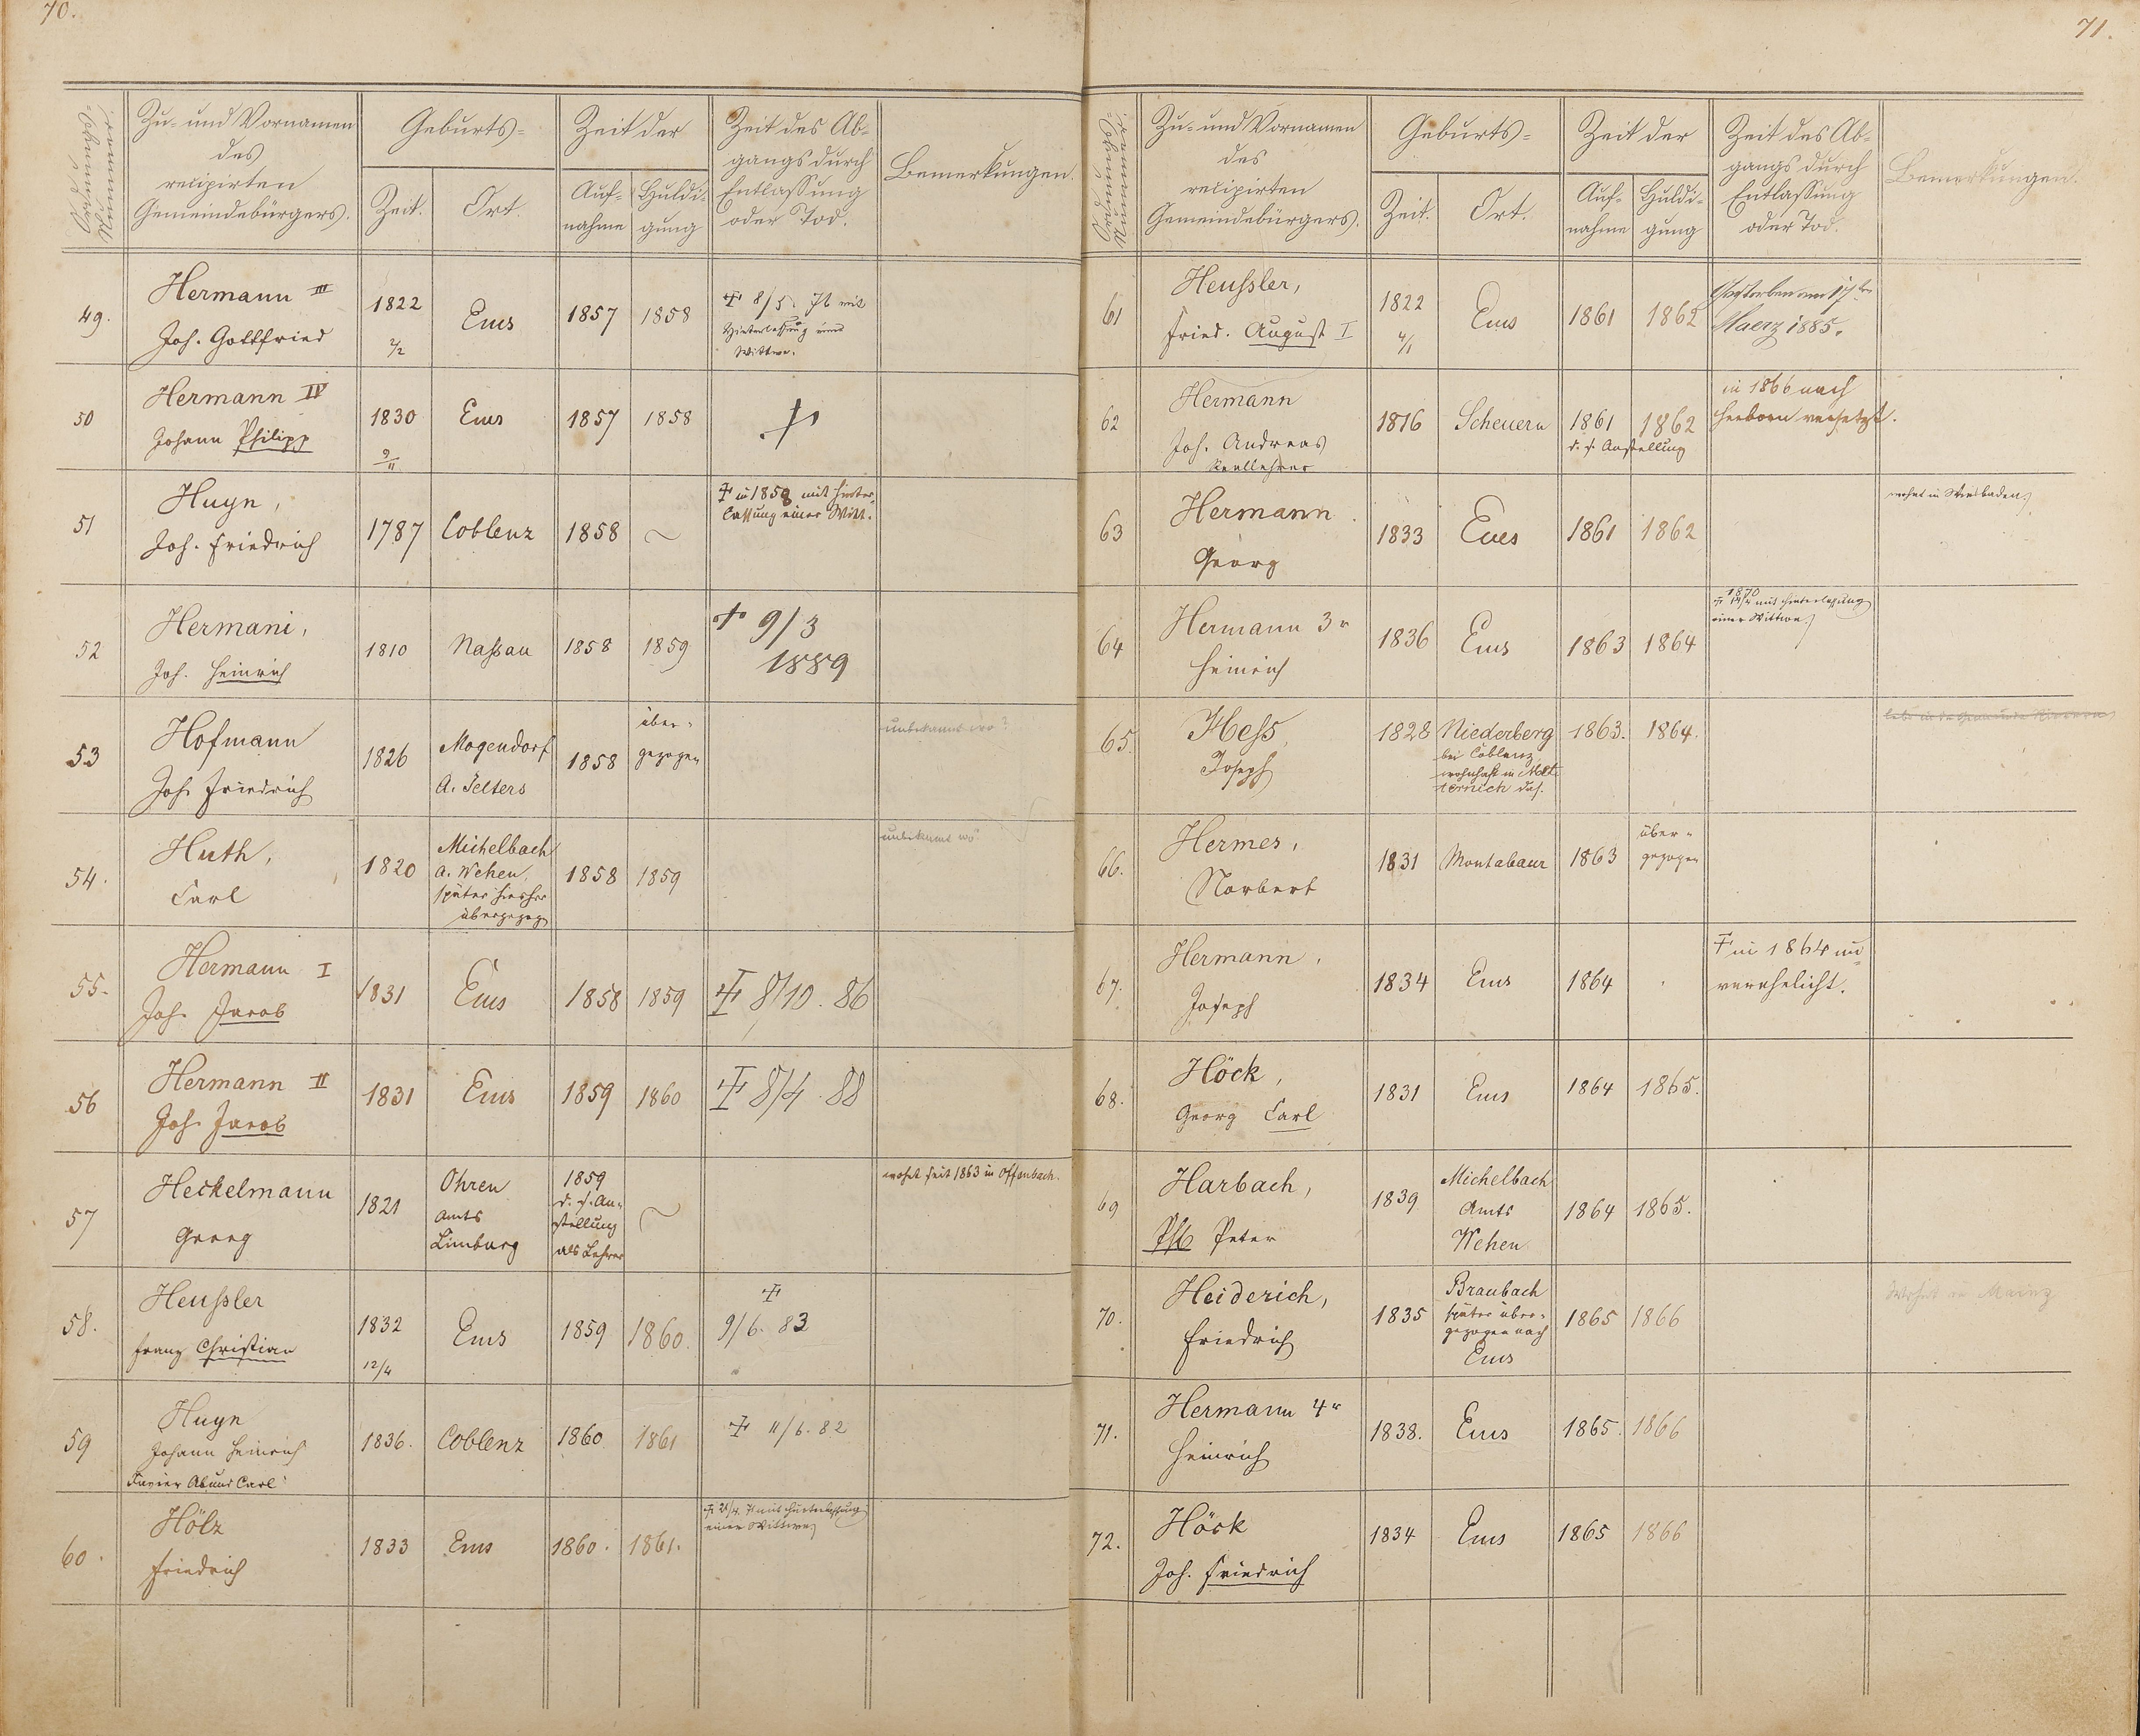 70.
Ordnungs-
nummer
Zu- und Vornamen
des
recipirten
Gemeindebürgers.
Geburts-
Zeit.
Ort.
Zeit der
Auf-
nahme
Huldi-
gung
Zeit des Ab-
gangs durch
Entlassung
oder Tod.
Bemerkungen.
49.
Hermann III
Joh. Gottfried
1822
2/2
Ems
1857
1858
8/5. 76 mit
Hinterlassung einer
Wittwe.
50
Hermann IV
Johann Philipp
1830
9/11
Ems
1857
1858
51
Huyn,
Joh. Friedrich
1787
Coblenz
1858
~
in 1858 mit Hinter-
lassung einer Witt.
52
Hermani,
Joh. Heinrich
1810
Nassau
1858
1859
9/3
1889
53
Hofmann
Joh Friedrich
1826
Mogendorf
A. Selters
1858
über-
gezogen
unbekannt wo?
54.
Huth,
Carl
1820
Michelbach
A. Wehen,
später hierher
übergezogen
1858
1859
unbekannt wo
55.
Hermann I
Joh. Jacob
1831
Ems
1858
1859
8/10. 86
56
Hermann II
Joh Jacob
1831
Ems
1859
1860
8/4. 88
57
Heckelmann
Georg
1821
Ohren
Amts
Limburg
1859
d. s. An-
stellung
als Lehrer
~
wohnt seit 1863 in Offenbach.
58.
Heussler
Franz Christian
1832
12/4
Ems
1859
1860.
9/6. 83
59
Huyn
Johann Heinrich
Xavier Carl
1836.
Coblenz
1860
1861
11/6. 82
60.
Hölz
Friedrich
1833
Ems
1860.
1861.
mit Hinterlassung
einer Wittwe
71.
Ordnungs-
nummer
Zu- und Vornamen
des
recipirten
Gemeindebürgers.
Geburts-
Zeit.
Ort.
Zeit der
Auf-
nahme
Huldi-
gung
Zeit des Ab-
gangs durch
Entlassung
oder Tod.
Bemerkungen.
61
Heussler,
Fried. August I
1822
4/1
Ems
1861
1862
Gestorben am 17ten
Maerz 1885.
62
Hermann
Joh. Andreas
Reallehrer
1816
Scheuern
1861
1862
d. s. Anstellung
in 1866 nach
Herborn versetzt.
63
Hermann
Georg
1833
Ems
1861
1862
wohnt in Wiesbaden
64
Hermann 3r
Heinrich
1836
Ems
1863
1864
1870
mit Hinterlassung
einer Wittwe
65.
Hess,
Joseph
1828
Niederberg
bei Coblenz
wohnhaft in Met-
ternich das.
1863.
1864.
66.
Hermes,
Norbert
1831
Montabaur
1863
über-
gezogen
67.
Hermann,
Joseph
1834
Ems
1864
in 1864 un-
verehelicht.
68.
Höck,
Georg Carl
1831
Ems
1864
1865.
69
Harbach,
Phil Peter
1839
Michelbach
Amts
Wehen
1864
1865.
70.
Heiderich,
Friedrich
1835
Braubach
später über-
gezogen nach
Ems
1865
1866
Wohnt in Mainz
71.
Hermann 4r
Heinrich
1838.
Ems
1865.
1866
72.
Höck
Joh. Friedrich
1834
Ems
1865
1866